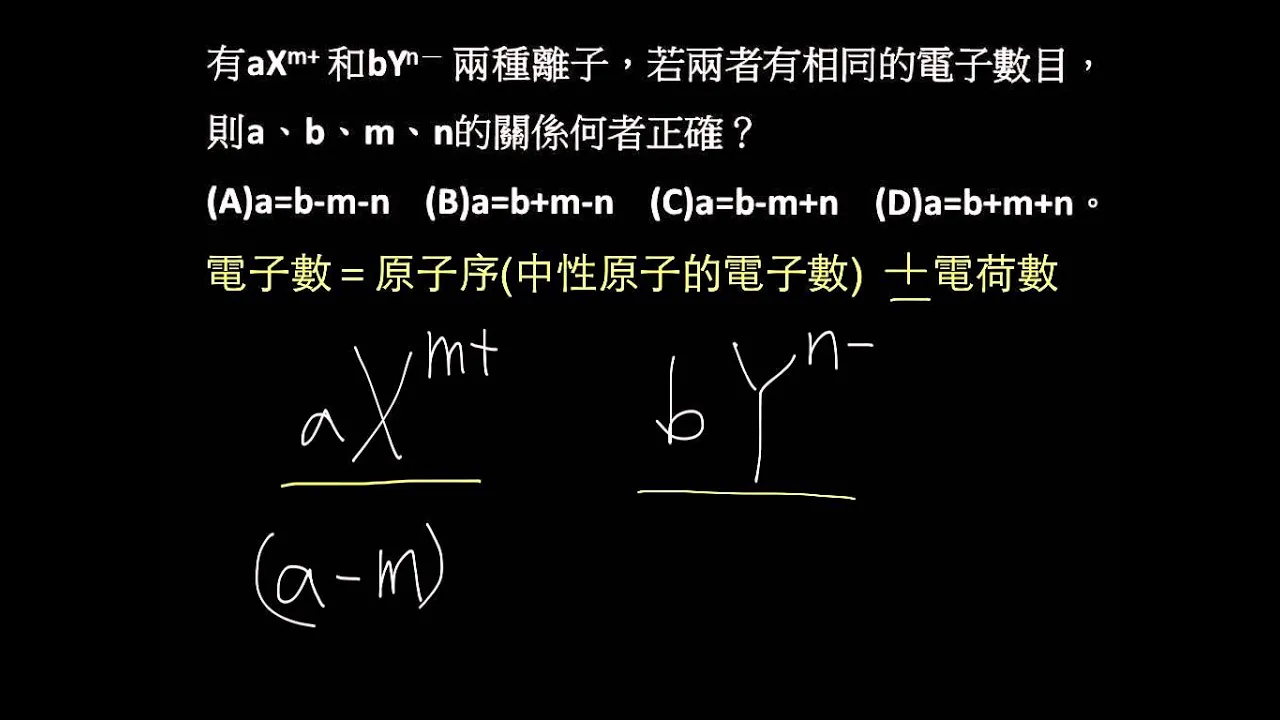 有aXᵐ⁺ 和bYⁿ⁻ 兩種離子，若兩者有相同的電子數目，
則a、b、m、n的關係何者正確？
(A)a=b-m-n (B)a=b+m-n (C)a=b-m+n (D)a=b+m+n。
電子數＝原子序(中性原子的電子數) ±電荷數
aXᵐ⁺ bYⁿ⁻
(a-m)